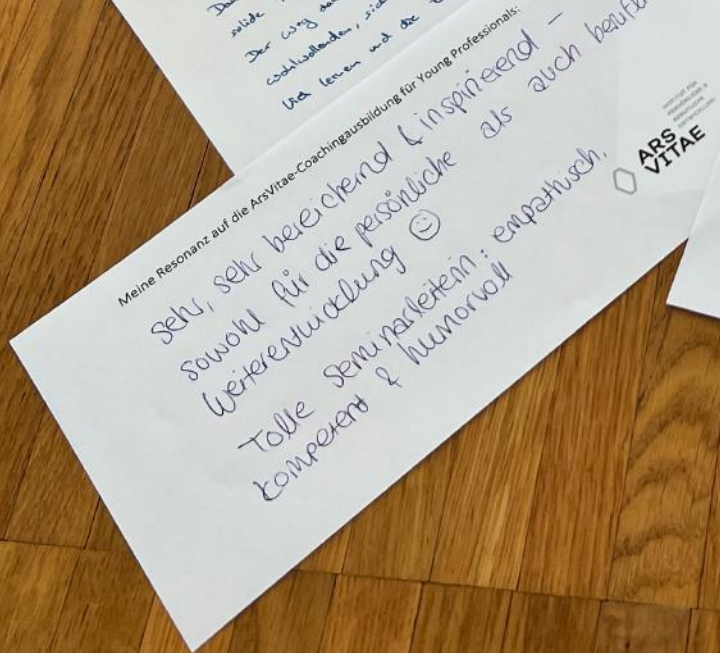 solide
Der Weg
wohlwollenden,
und die
Meine Resonanz auf die ArsVitae-Coachingausbildung für Young Professionals:
Sehr, sehr bereichernd & inspirierend –
sowohl für die persönliche als auch
Weiterentwicklung ☺
Tolle Seminarleiterin: empathisch,
kompetent & humorvoll
INSTITUT FÜR
ARS
VITAE